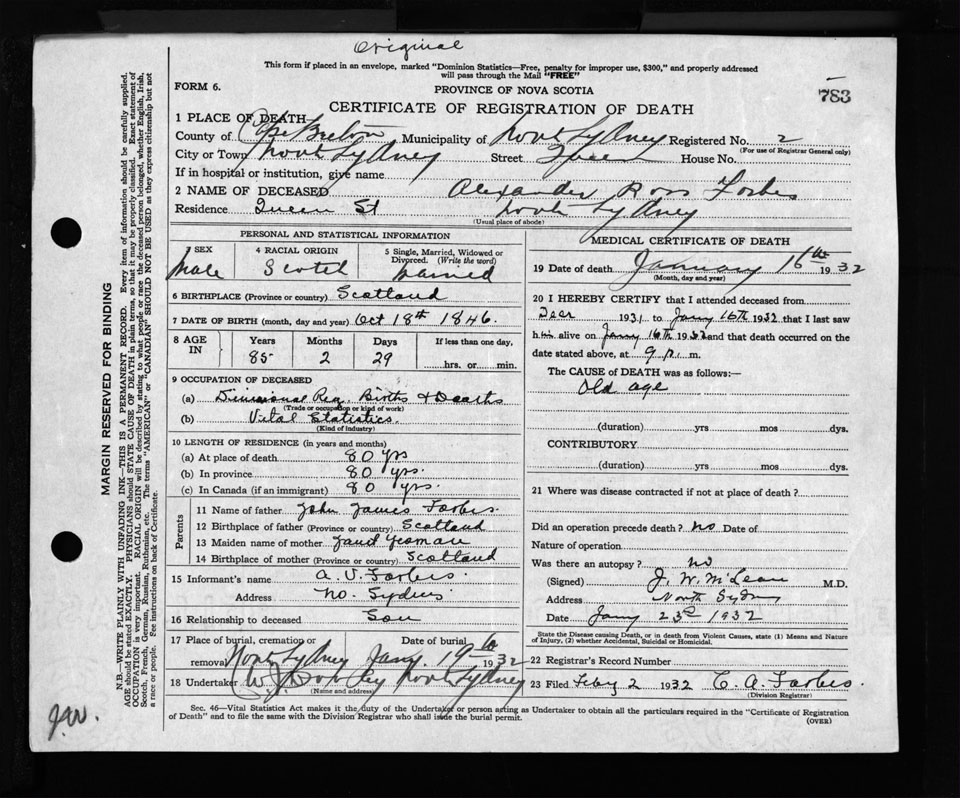 Original
This form if placed in an envelope, marked "Dominion Statistics—Free, penalty for improper use, $300," and properly addressed
will pass through the Mail "FREE"
FORM 6.
PROVINCE OF NOVA SCOTIA
783
CERTIFICATE OF REGISTRATION OF DEATH
1 PLACE OF DEATH
County of Cape Breton Municipality of North Sydney Registered No. 2
(For use of Registrar General only)
City or Town North Sydney Street Queen House No.
If in hospital or institution, give name
2 NAME OF DECEASED Alexander Ross Forbes
Residence Queen St North Sydney
(Usual place of abode)
PERSONAL AND STATISTICAL INFORMATION
3 SEX Male
4 RACIAL ORIGIN Scotch
5 Single, Married, Widowed or
Divorced. (Write the word)
Married
6 BIRTHPLACE (Province or country) Scotland
7 DATE OF BIRTH (month, day and year) Oct 18th 1846.
8 AGE IN Years Months Days If less than one day,
85 2 29 hrs. or min.
9 OCCUPATION OF DECEASED
(a) Divisional Reg. Births & Deaths
(Trade or occupation or kind of work)
(b) Vital Statistics.
(Kind of industry)
10 LENGTH OF RESIDENCE (in years and months)
(a) At place of death 80 yrs
(b) In province 80 yrs.
(c) In Canada (if an immigrant) 80 yrs.
Parents
11 Name of father John James Forbes.
12 Birthplace of father (Province or country) Scotland
13 Maiden name of mother Yeoman
14 Birthplace of mother (Province or country) Scotland
15 Informant's name A. V. Forbes.
Address No. Sydney
16 Relationship to deceased Son
17 Place of burial, cremation or Date of burial
removal North Sydney Jany. 19th 1932
18 Undertaker W. North Sydney
(Name and address)
MEDICAL CERTIFICATE OF DEATH
19 Date of death January 16th 1932
(Month, day and year)
20 I HEREBY CERTIFY that I attended deceased from
1931 to Jany 16th 1932 that I last saw
him alive on Jany 16th 1932 and that death occurred on the
date stated above, at 9 p.m.
The CAUSE of DEATH was as follows:—
Old age
(duration) yrs mos dys.
CONTRIBUTORY
(duration) yrs. mos. dys.
21 Where was disease contracted if not at place of death?
Did an operation precede death? no Date of
Nature of operation
Was there an autopsy? no
(Signed) J. W. McLean M.D.
Address North Sydney
Date Jany 23rd 1932
State the Disease causing Death, or in death from Violent Causes, state (1) Means and Nature
of Injury, (2) whether Accidental, Suicidal or Homicidal.
22 Registrar's Record Number
23 Filed Feby 2 1932 C. A. Forbes.
(Division Registrar)
Sec. 46—Vital Statistics Act makes it the duty of the Undertaker or person acting as Undertaker to obtain all the particulars required in the "Certificate of Registration
of Death" and to file the same with the Division Registrar who shall issue the burial permit.
(OVER)
MARGIN RESERVED FOR BINDING
N.B.—WRITE PLAINLY WITH UNFADING INK—THIS IS A PERMANENT RECORD. Every item of information should be carefully supplied.
AGE should be stated EXACTLY. PHYSICIANS should STATE CAUSE OF DEATH in plain terms, so that it may be properly classified. Exact statement of
OCCUPATION is very important. RACIAL ORIGIN will be described by stating to what people or race the deceased person belonged, whether English, Irish,
Scotch, French, German, Russian, Ruthenian, etc. The terms "AMERICAN" or "CANADIAN" SHOULD NOT BE USED as they express citizenship but not
a race or people. See instructions on back of Certificate.
J.W.